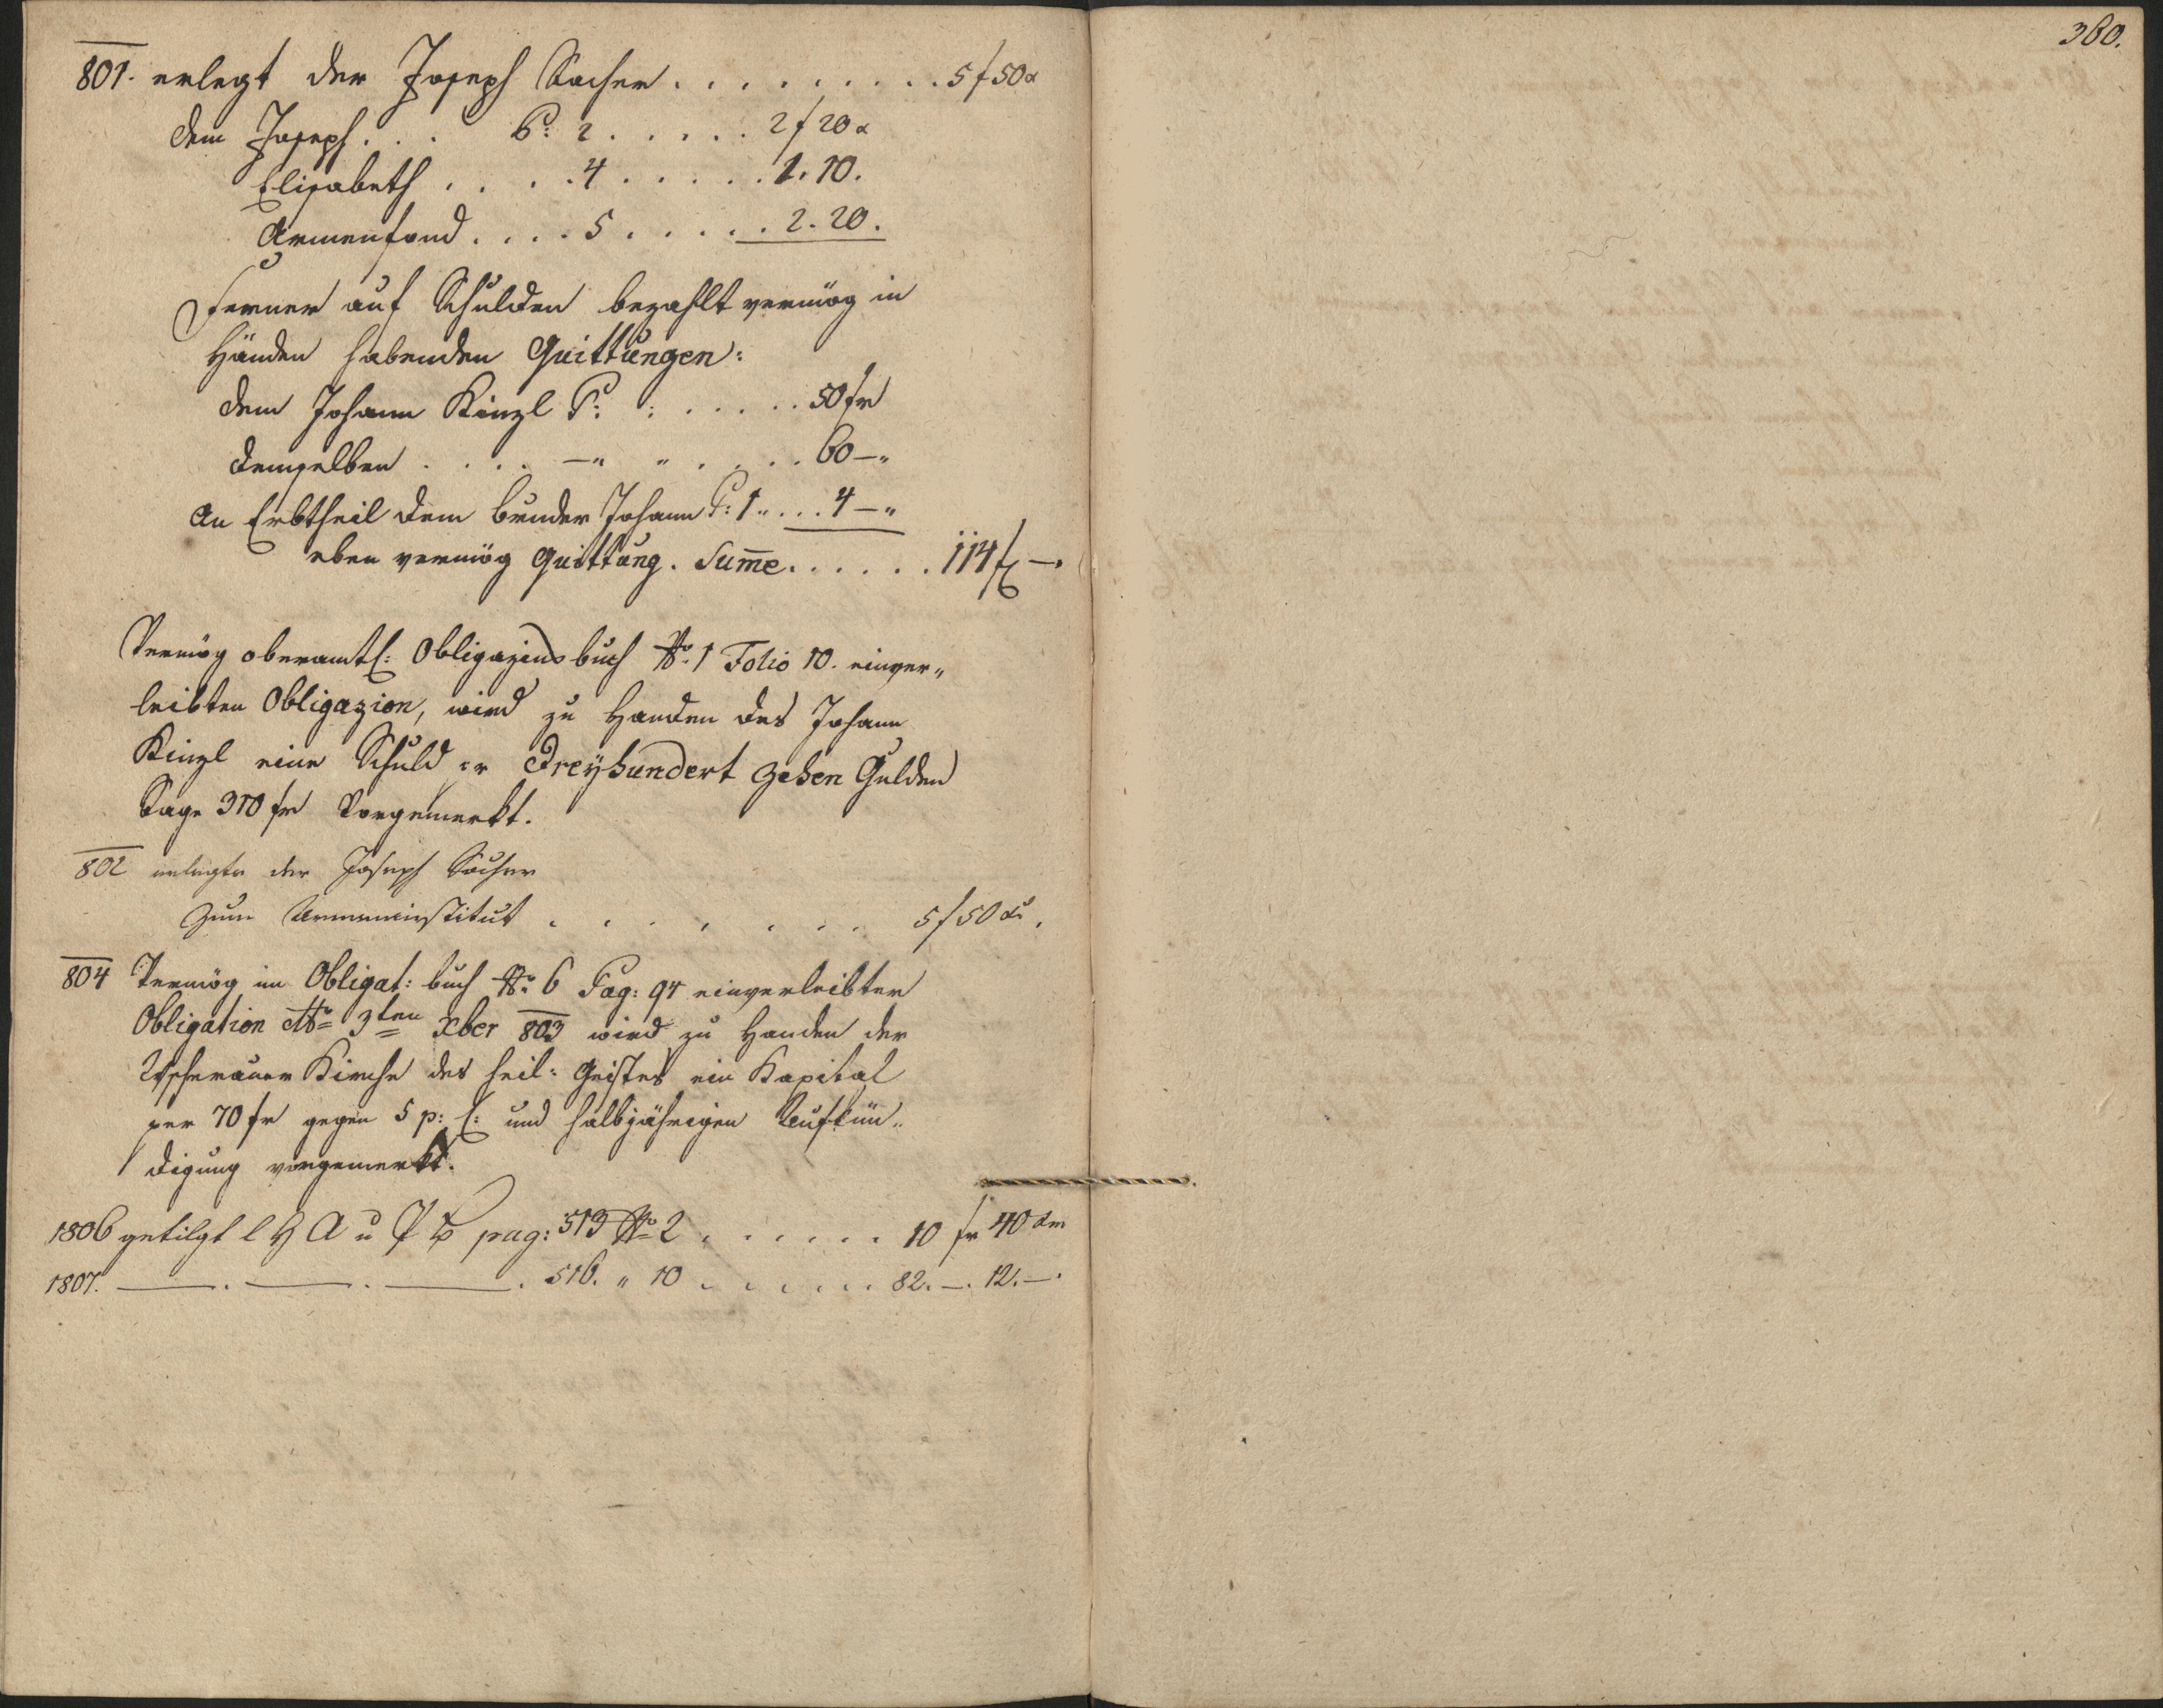 801. erlegt der Joseph Bacher . . . . . . . . . 5 f 50 x
dem Joseph . . . P: 2 . . . . . 2 f 20 x
Elisabeth . . . . 4 . . . . . 1. 10.
Armenfond . . . . 5 . . . . . 2. 20.
Ferner auf Schulden bezahlt vermög in
Händen habenden Quittungen:
dem Johann Kinzl P: : . . . . . 50 fr
demselben . . . . —" " . . . . 60 —"
An Erbtheil dem bruder Johann P: 1 " . . . 4 —"
eben vermög Quittung. Sum̄e . . . . . . 114 f —
Vermög oberamtl: Obligazions buch No. 1 Folio 10. einver„
leibten Obligazion, wird zu Handen des Johann
Kinzl eine Schuld Dreÿhundert zehen Gulden
Sage 310 fr Vorgemerkt.
802 erlegte der Joseph Bacher
Zum Armeninstitut . . . . . . . 5 f 50 xr.
804 Vermög im Obligat: buch No. 6 Pag: 94 einverleibter
Obligation 3ten Xber 803 wird zu Handen der
Kirche des heil: Geistes ein Kapital
per 70 fr gegen 5 p: C: und halbjährigen Aufkün„
digung vorgemerkt.
1806 getilgt l H A u pag: 513 No 2 . . . . . . 10 fr 40 xr
1807. — . — . — . 516. " 10 . . . . . . 82. —. 12. —.
380.